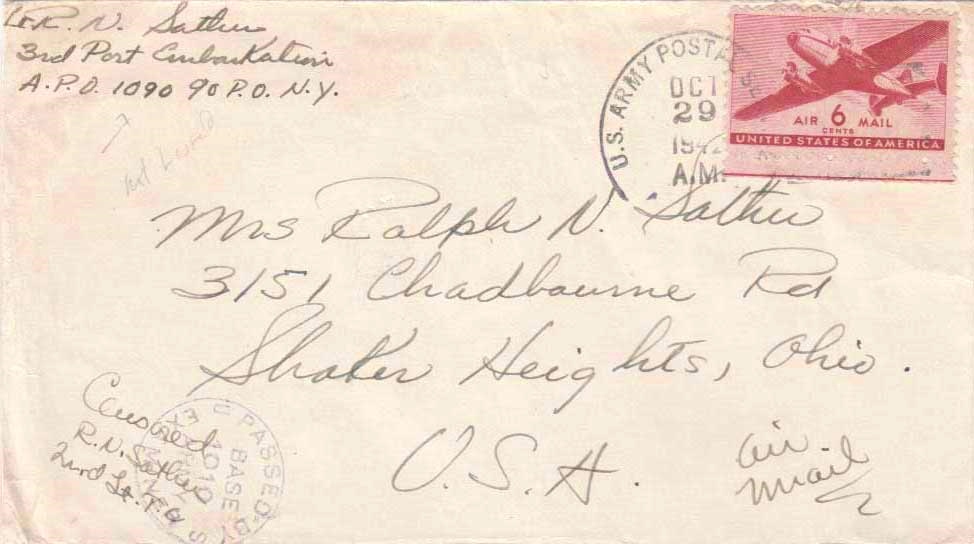 Lt. R. N. Sather
3rd Port Embarkation
A.P.O. 1090 % P.O. N.Y.
not
U.S. ARMY POSTAL
OCT
29
1942
A.M.
AIR 6 MAIL
CENTS
UNITED STATES OF AMERICA
Mrs Ralph N. Sather
3151 Chadbourne Rd
Shaker Heights, Ohio.
U.S.A.
air
mail
Censored
R.N. Sather
2nd Lt. T.C.
PASSED BY
BASE
1010